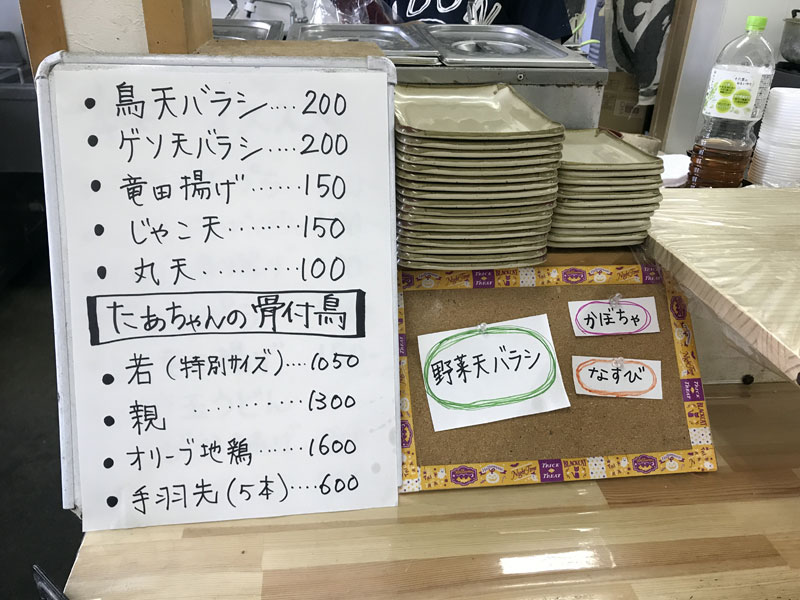 • 鳥天バラシ....200
• ゲソ天バラシ....200
• 竜田揚げ......150
• じゃこ天........150
• 丸天.........100
たあちゃんの骨付鳥
• 若(特別サイズ)...1050
• 親..........1300
• オリーブ地鶏......1600
• 手羽先(5本)....600
野菜天バラシ
かぼちゃ
なすび
TRICK TREAT